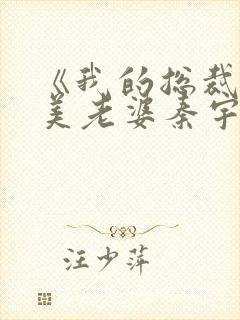 《我的总裁
美老婆秦宇
汪少萍